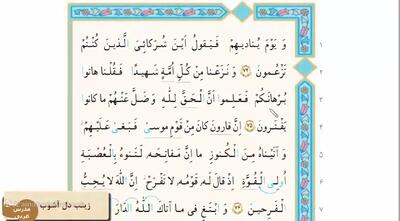 ١ وَ یَوْمَ یُنادیهِمْ فَیَقُولُ اَیْنَ شُرَکائِیَ الَّذینَ کُنْتُمْ
٢ تَزْعُمُونَ ﴿٧٤﴾ وَ نَزَعْنا مِنْ کُلِّ اُمَّةٍ شَهیدًا فَقُلْنا هاتوا
٣ بُرْهانَکُمْ فَعَلِموا اَنَّ الْحَقَّ لِلّٰهِ وَ ضَلَّ عَنْهُمْ ما کانوا
۴ یَفْتَرونَ ﴿٧٥﴾ اِنَّ قارونَ کانَ مِنْ قَوْمِ موسیٰ فَبَغیٰ عَلَیْهِمْ
۵ وَ آتَیْناهُ مِنَ الْکُنوزِ ما اِنَّ مَفاتِحَهُ لَتَنوءُ بِالْعُصْبَةِ
۶ اُولِی الْقُوَّةِ اِذْ قالَ لَهُ قَوْمُهُ لا تَفْرَحْ اِنَّ اللّٰهَ لا یُحِبُّ
٧ الْفَرِحینَ ﴿٧٦﴾ وَ ابْتَغِ فی ما آتاكَ اللّٰهُ الدّارَ
زینب دل آشوب
مدرس عربی